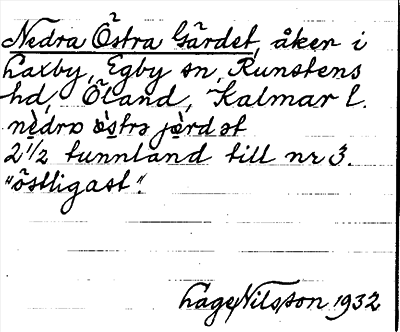 Nedra Östra Gärdet, åker i
Laxby, Egby sn, Runstens
hd, Öland, Kalmar l.
nèdrə òstrə jærdət
2 1/2 tunnland till nr 3.
"östligast".
Lage Nilsson 1932